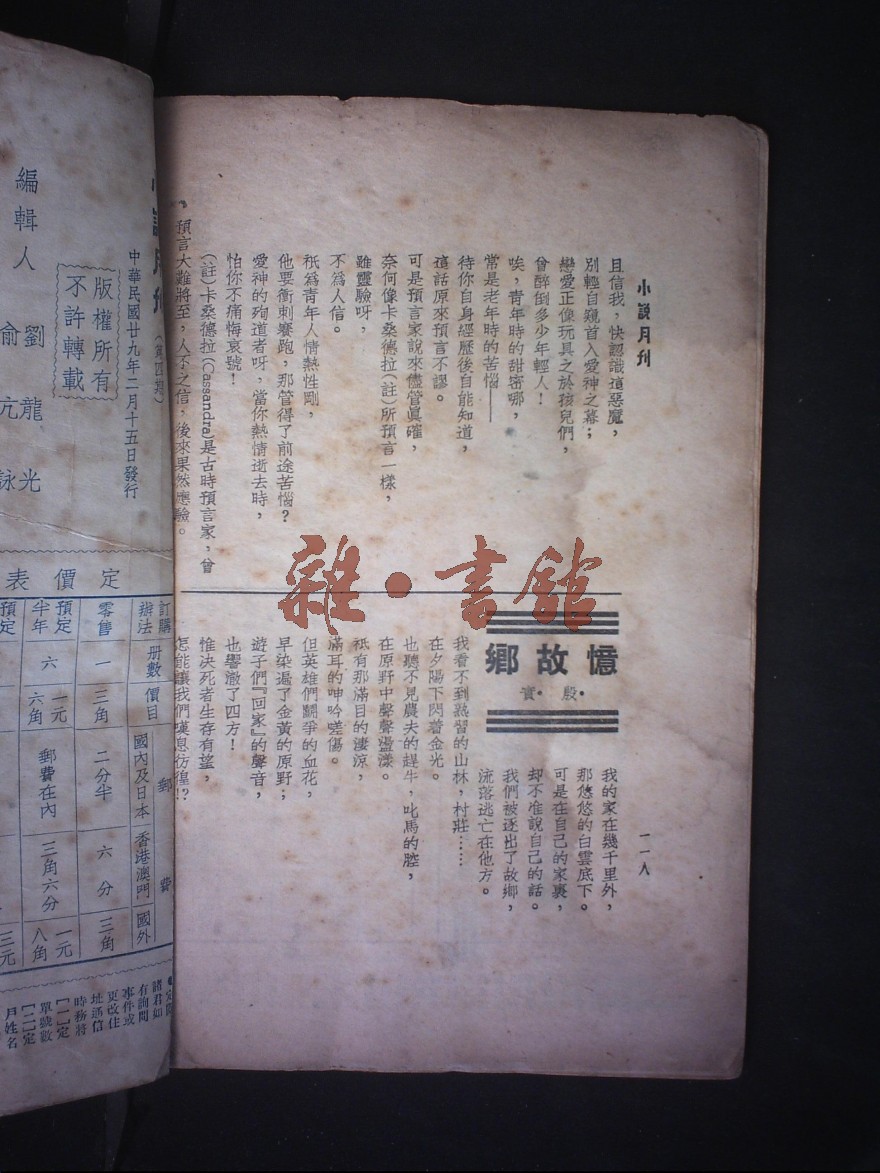 小說月刊
且信我，快認識這惡魔，
別輕自窺首入愛神之幕；
戀愛正像玩具之於孩兒們，
曾醉倒多少年輕人！
唉，青年時的甜密哪，
常是老年時的苦惱——
待你自身經歷後自能知道，
這話原來預言不謬。
可是預言家說來儘管眞確，
奈何像卡桑德拉（註）所預言一樣，
雖靈驗呀，
不爲人信。
祇爲青年人情熱性剛，
他要衝刺賽跑，那管得了前途苦惱？
愛神的殉道者呀，當你熱情逝去時，
怕你不痛悔哀號！
（註）卡桑德拉（Cassandra）是古時預言家，曾
預言大難將至，人不之信，後來果然應驗。
憶故鄉
·殷·實
我的家在幾千里外，
那悠悠的白雲底下。
可是在自己的家裏，
却不准說自己的話。
我們被逐出了故鄉，
流落逃亡在他方。
我看不到熟習的山林，村莊……
在夕陽下閃着金光。
也聽不見農夫的趕牛，叱馬的腔，
在原野中聲聲盪漾。
祇有那滿目的淒涼，
滿耳的呻吟嗟傷。
但英雄們鬭爭的血花，
早染遍了金黃的原野；
遊子們『回家』的聲音，
也響澈了四方！
惟決死者生存有望，
怎能讓我們嘆息彷徨！？
一一八
雜·書館
小說月刊（第四期）
中華民國廿九年二月十五日發行
版權所有
不許轉載
編輯人
劉龍光
俞亢詠
定價表
訂購辦法
冊數
價目
郵費
國內及日本
香港澳門
國外
零售
一
三角
二分半
六分
三角
預定半年
六
一元六角
郵費在內
三角六分
一元八角
預定
三元
諸君如
有詢問
事件或
更改住
址通信
時務將
［一］定
單號數
［二］定
戶姓名